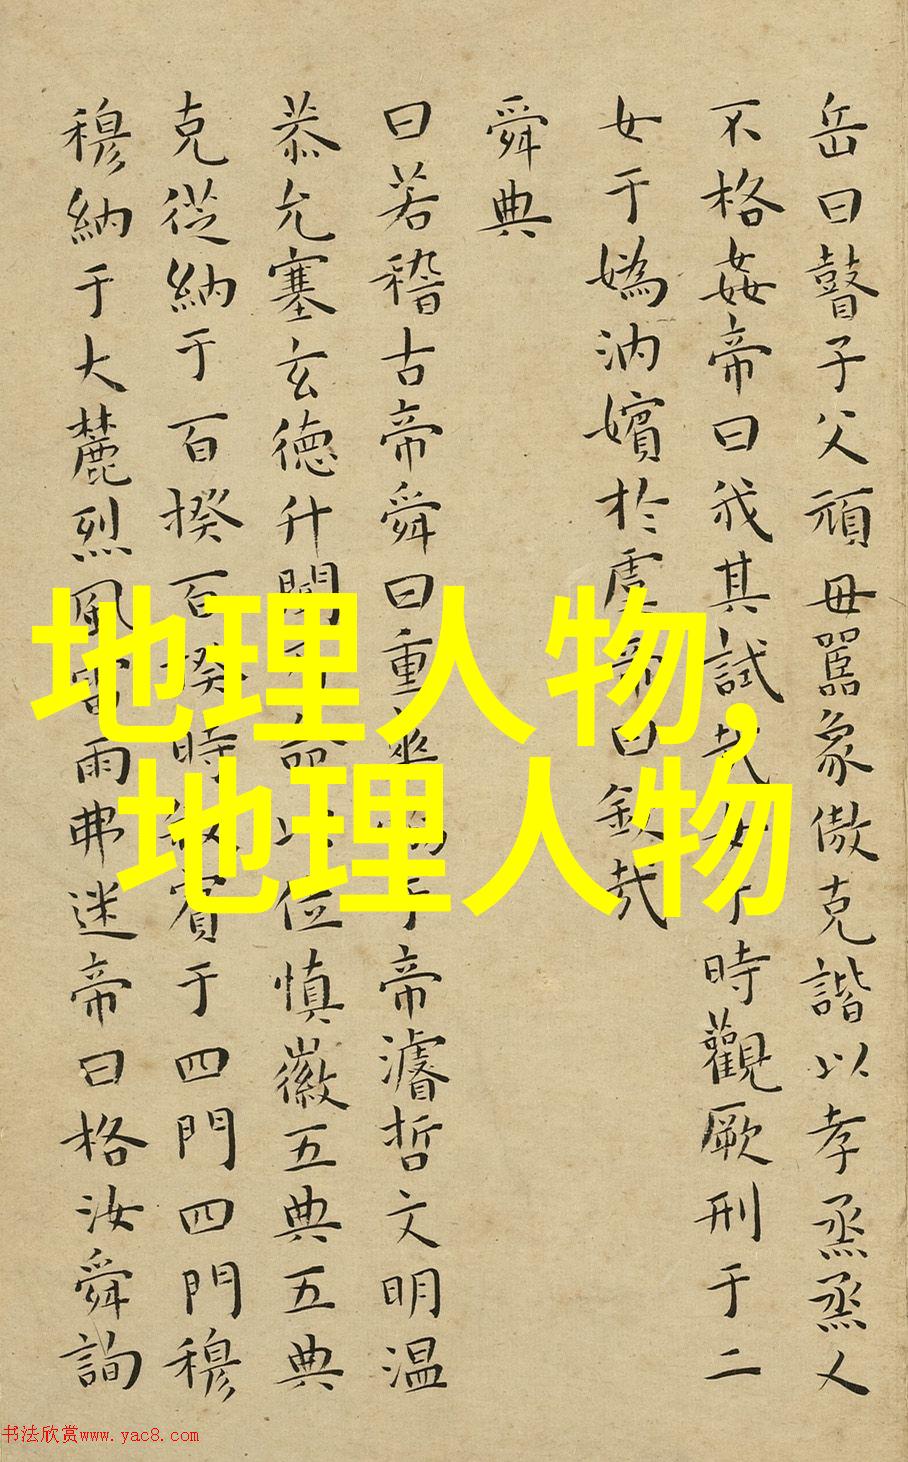 岳曰瞽子父頑母嚚象傲克諧以孝烝烝乂
不格姦帝曰我其試哉女于時觀厥刑于二
女于媯汭嬪於虞帝曰欽哉
舜典
曰若稽古帝舜曰重華于帝濬哲文明温
恭允塞玄德升聞命以位慎徽五典五典
克從納于百揆百揆時敘賓于四門四門穆
穆納于大麓烈風雷雨弗迷帝曰格汝舜詢
地理人物,
地理人物
书法欣赏www.yac8.com